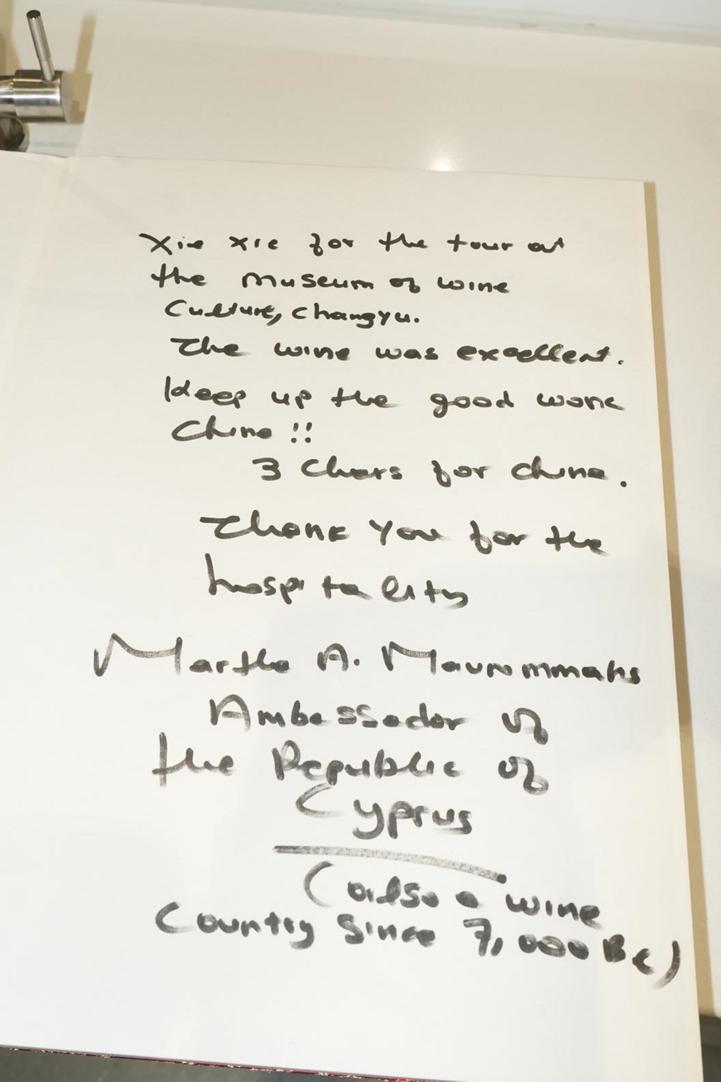 Xie xie for the tour at
the museum of wine
Culture, Changyu.
The wine was excellent.
Keep up the good work
China !!
3 Chers for china.
Thank You for the
hospitality
Martha A. Mavrommatis
Ambassador of
the Republic of
Cyprus
(also a wine
Country since 7,000 BC)